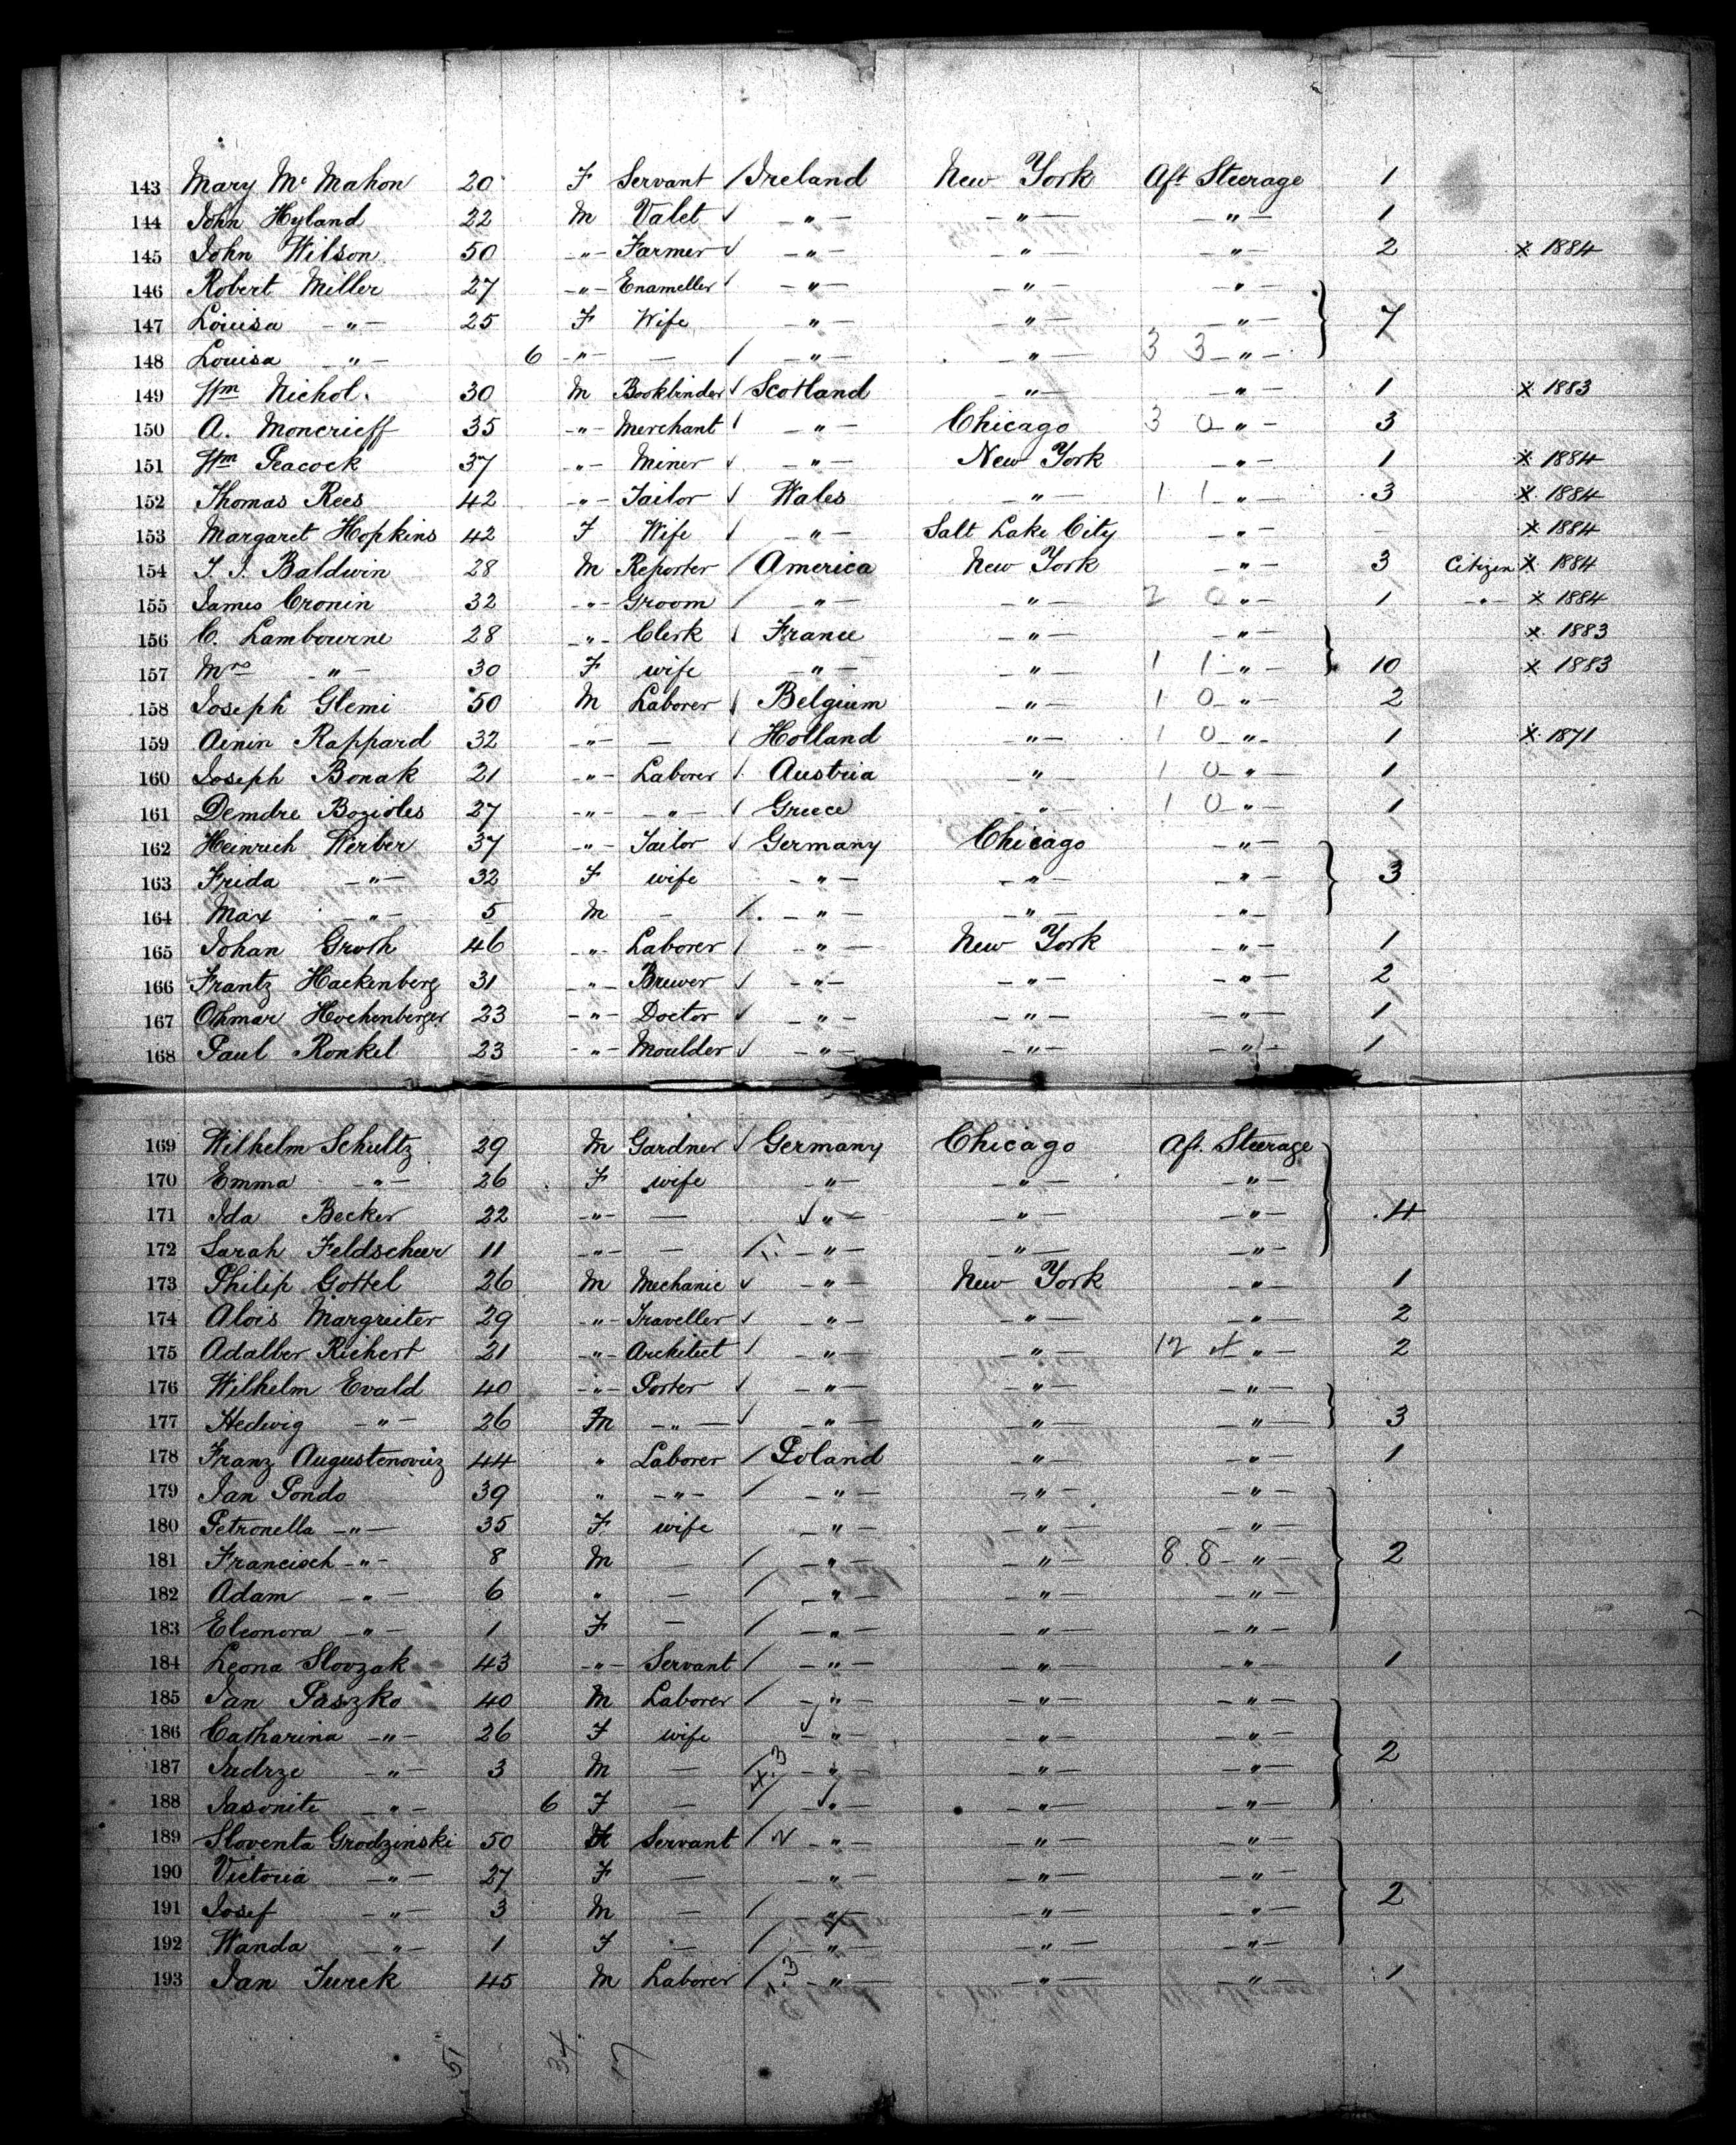 143 Mary Mc Mahon 20 F Servant / Ireland New York Aft Steerage 1
144 John Hyland 22 M Valet √ —"— —"— —"— 1
145 John Wilson 50 —"— Farmer √ —"— " —"— 2 X 1884
146 Robert Miller 27 —"— Enameller / —"— —"— —"—
147 Louisa —"— 25 F Wife —"— —"— —"— } 7
148 Louisa —"— 6 —"— — / —"— —"— 3 3 —"—
149 Wm Nichol. 30 M Bookbinder √ Scotland —"— —"— 1 X 1883
150 A. Moncrieff 35 —"— Merchant / —"— Chicago 3 0 —"— 3
151 Wm Peacock 37 —"— Miner √ —"— New York —"— 1 X 1884
152 Thomas Rees 42 —"— Tailor √ Wales —"— 1 1 —"— 3 X 1884
153 Margaret Hopkins 42 F Wife √ —"— Salt Lake City —"— — X 1884
154 T. J. Baldwin 28 M Reporter / America New York —"— 3 Citizen X 1884
155 James Cronin 32 —"— Groom / —"— —"— 2 0 —"— 1 —"— X 1884
156 C. Lambourne 28 —"— Clerk √ France —"— —"— X 1883
157 Mrs —"— 30 F wife —"— —"— 1 1 —"— } 10 X 1883
158 Joseph Glemi 50 M Laborer √ Belgium —"— 1 0 —"— 2
159 Aenin Rappard 32 —"— — / Holland —"— 1 0 —"— 1 X 1871
160 Joseph Bonak 21 —"— Laborer / Austria —"— 1 0 —"— 1
161 Demdre Bozioles 27 —"— —"— / Greece —"— 1 0 —"— 1
162 Heinrich Werber 37 —"— Tailor √ Germany Chicago —"—
163 Frida —"— 32 F wife —"— —"— —"— } 3
164 Max —"— 5 M — / —"— —"— —"—
165 Johan Groth 46 —"— Laborer / —"— New York —"— 1
166 Frantz Hackenberg 31 —"— Brewer √ —"— —"— —"— 2
167 Othmar Hochenberger 23 —"— Doctor √ —"— —"— —"— 1
168 Paul Ronkel 23 —"— Moulder √ —"— —"— —"— 1
169 Wilhelm Schultz 29 M Gardner √ Germany Chicago Aft. Steerage
170 Emma —"— 26 F wife —"— —"— —"—
171 Ida Becker 22 —"— — √ —"— —"— —"— } 4
172 Sarah Feldscheer 11 —"— — / —"— —"— —"—
173 Philip Gottel 26 M Mechanic √ —"— New York —"— 1
174 Alois Margreiter 29 —"— Traveller √ —"— —"— —"— 2
175 Adalber Richert 21 —"— Architect / —"— —"— 12 4 —"— 2
176 Wilhelm Evald 40 —"— Porter √ —"— —"— —"—
177 Hedwig —"— 26 M —"— √ —"— —"— —"— } 3
178 Franz Augustenoviz 44 " Laborer / Poland —"— —"— 1
179 Jan Pondo 39 " —"— / —"— —"— —"—
180 Petronella —"— 35 F. wife —"— —"— —"—
181 Francisch —"— 8 M — / —"— —"— 8 8 —"— } 2
182 Adam —"— 6 " — / —"— —"— —"—
183 Eleonora —"— 1 F — / —"— —"— —"—
184 Leona Slovzak 43 —"— Servant / —"— —"— —"— 1
185 Jan Paszko 40 M Laborer / —"— —"— —"—
186 Catharina —"— 26 F wife √ —"— —"— —"—
187 Indrze —"— 3 M — / 4.3 —"— —"— —"— } 2
188 Jasonite —"— 6 F — / —"— —"— —"—
189 Sloventa Grodzinski 50 Servant / 2 —"— —"— —"—
190 Victoria —"— 27 F — —"— —"— —"—
191 Josef —"— 3 M — / —"— —"— —"— } 2
192 Wanda —"— 1 F — / —"— —"— —"—
193 Jan Turek 45 M Laborer / 1.3 —"— —"— —"— 1
51 34 17